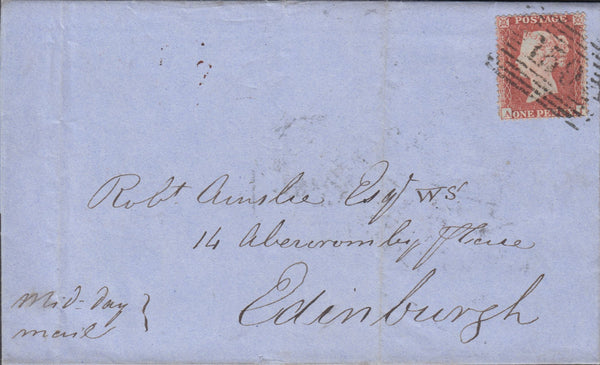 POSTAGE
ONE PEN
A
Robt Ainslie Esqr W.S.
14 Abercromby Place
Edinburgh
Mid-day
mail